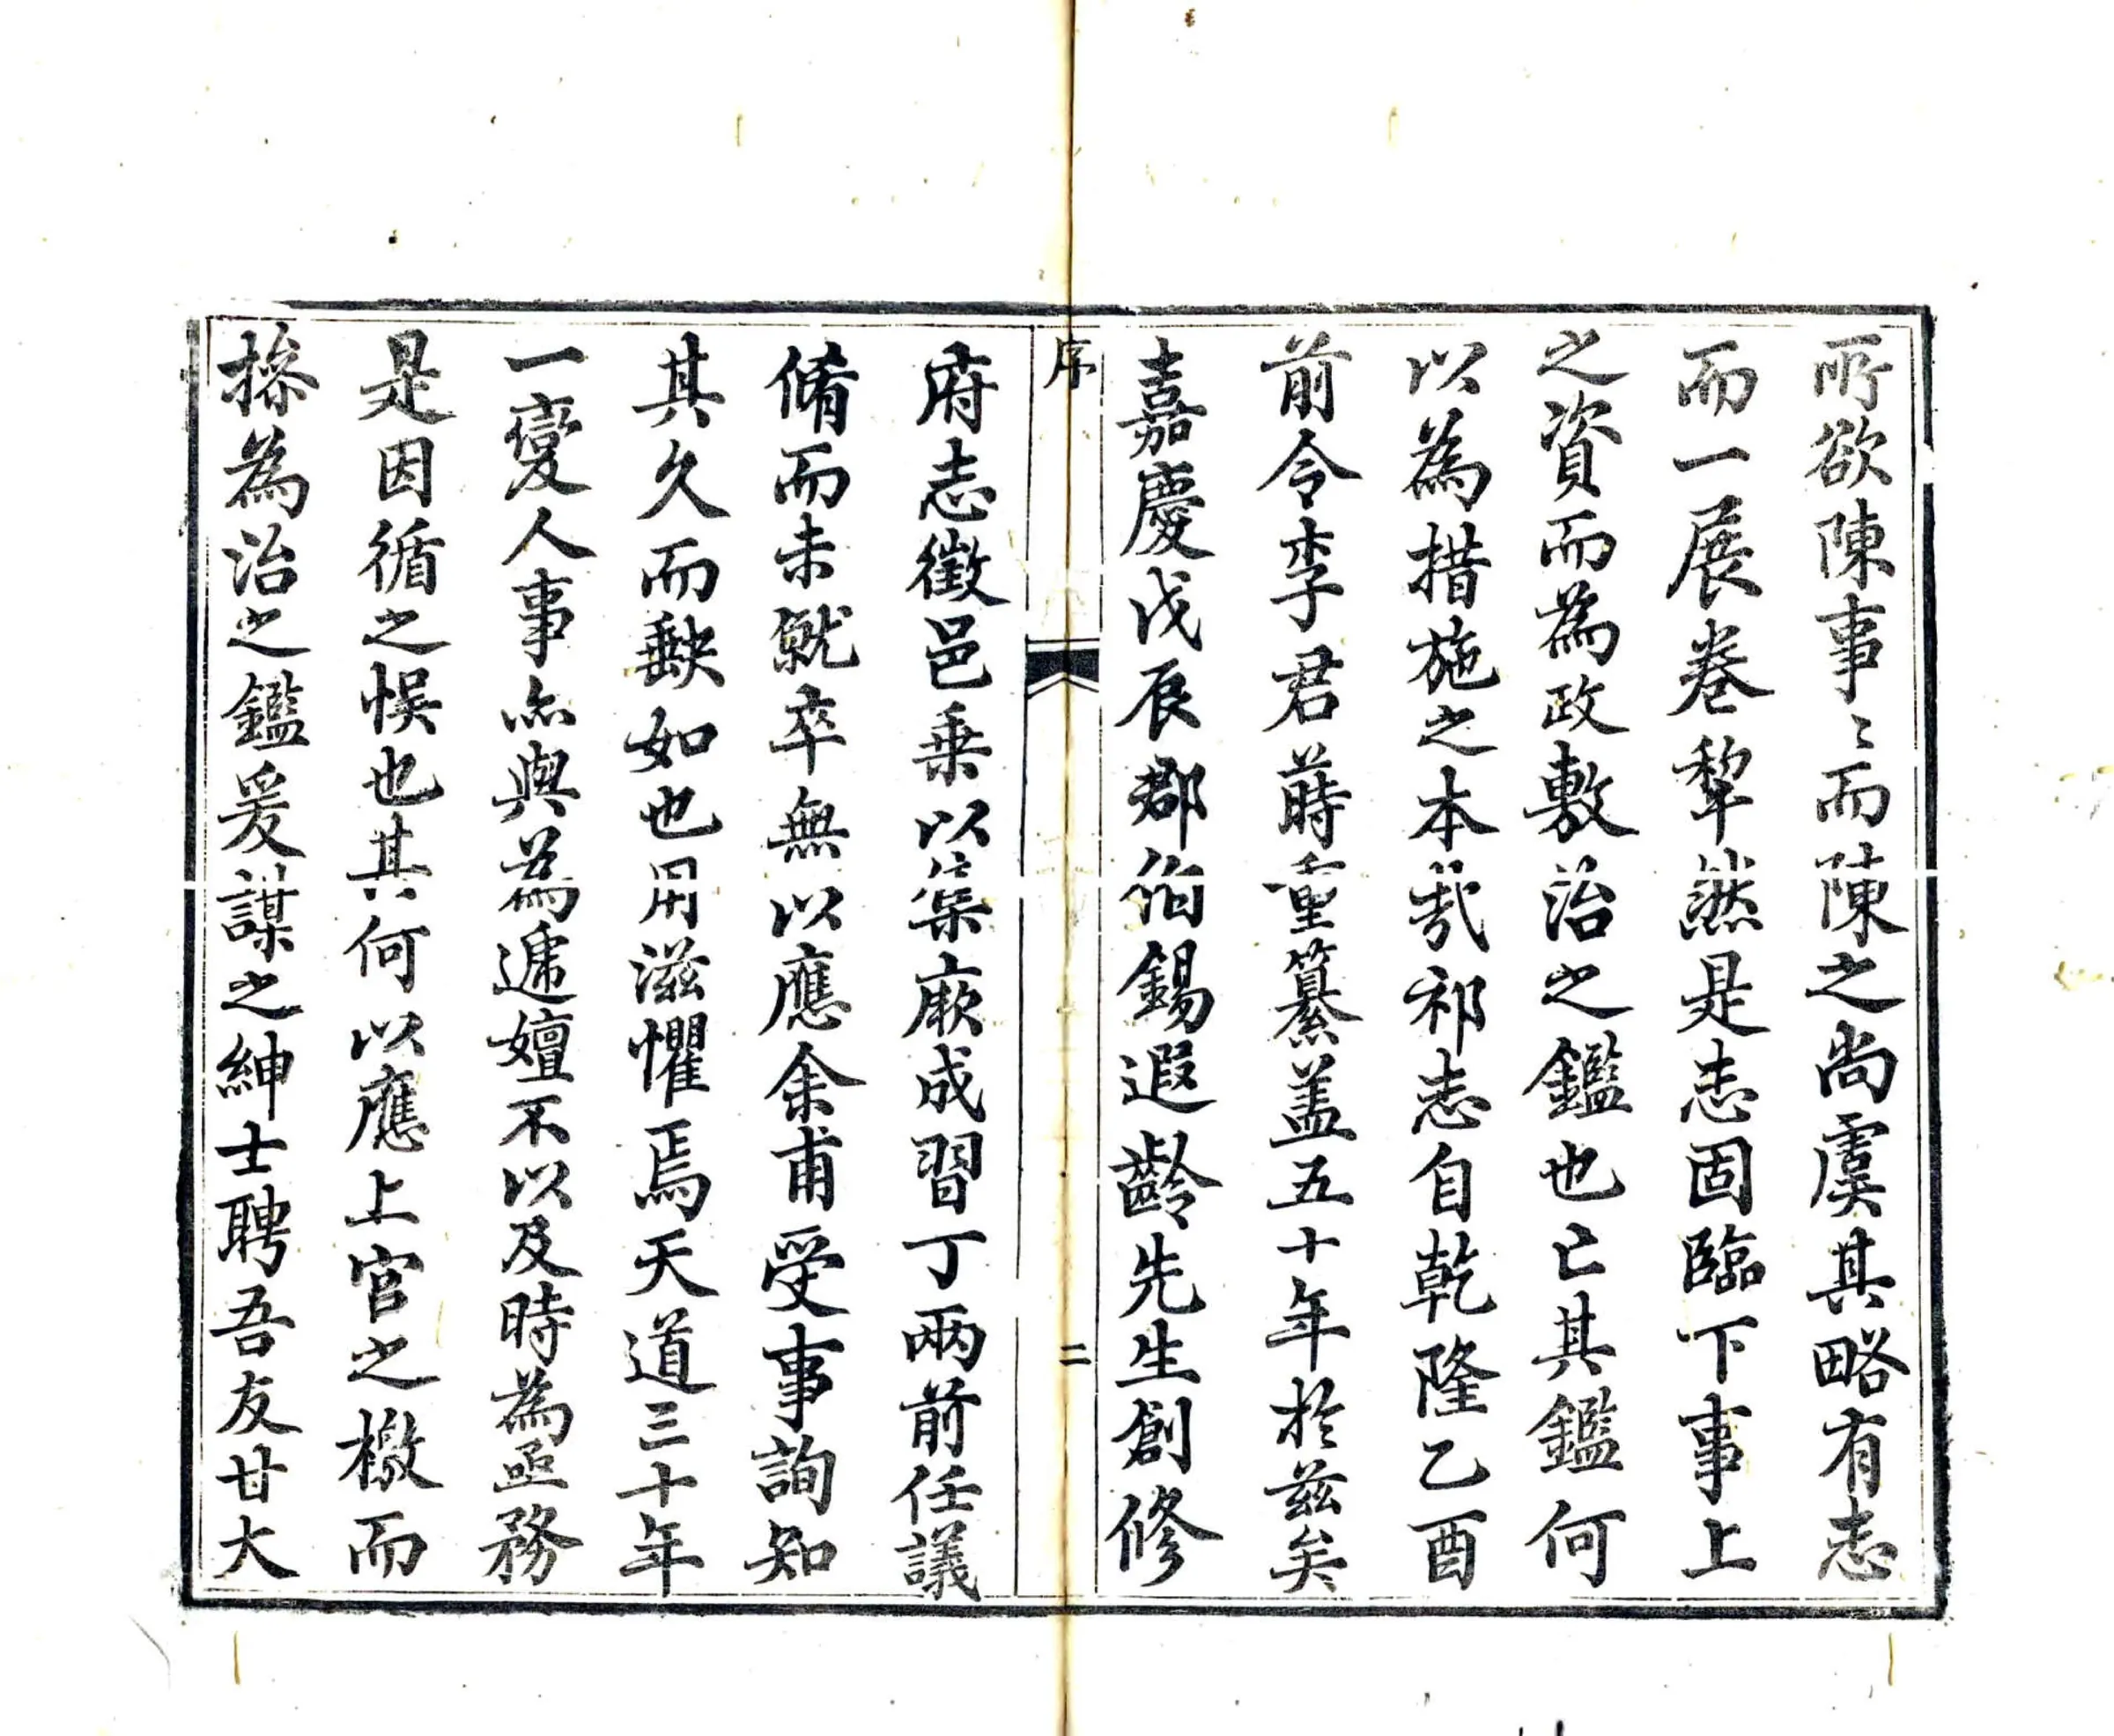 所欲陳事〻而陳之尚虞其略有志
而一展卷犂然是志固臨下事上
之資而為政敷治之鑑也亡其鑑何
以為措施之本哉祁志自乾隆乙酉
前令李君蒔重纂盖五十年於兹矣
嘉慶戊辰郡伯錫遐齡先生創修
序
二
府志徵邑乗以集厥成習丁兩前任議
脩而未就卒無以應余甫受事詢知
其久而缺如也用滋懼焉天道三十年
一變人事亦與為遞嬗不以及時為亟務
是因循之悞也其何以應上官之檄而
操為治之鑑爰謀之紳士聘吾友甘大